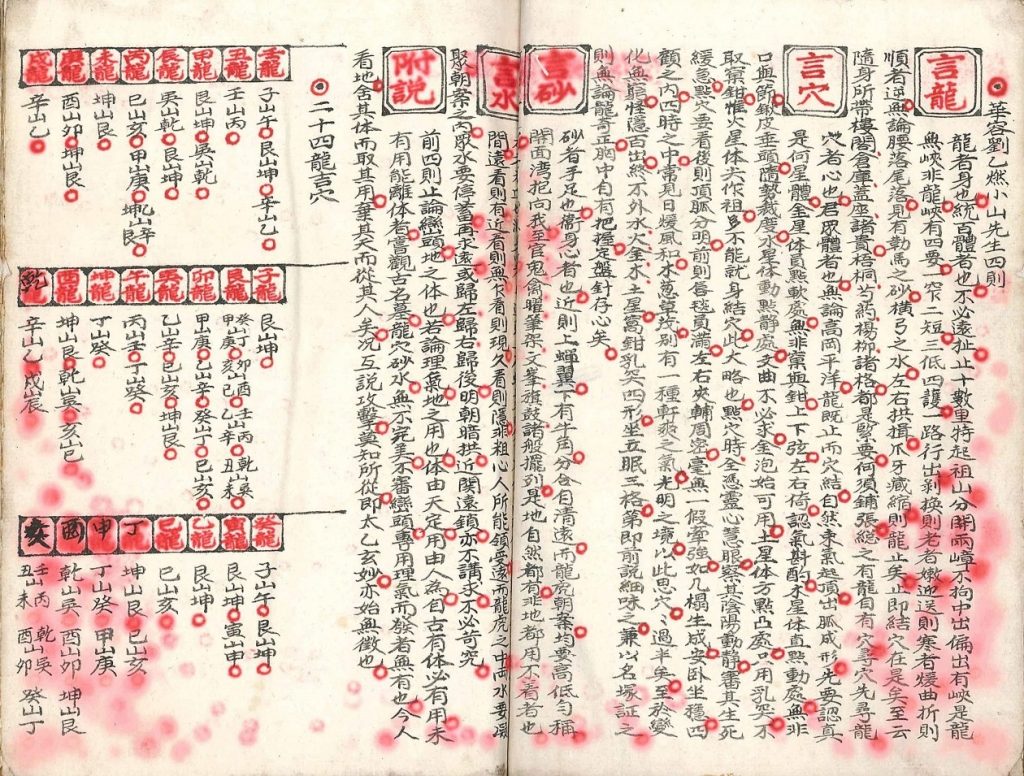 華容劉乙燃小山先生四則
言龍
龍者身也統百體者也不必遠扯止十數里特起祖山分開兩嶂不拘中出偏出有峽是龍
無峽非龍峽有四要一窄二短三低四護一路行出剝換則老者嫩迎送則寒者煖曲折則
順者逆無論腰落尾落見有勒馬之砂橫弓之水左右拱揖爪牙藏縮則龍止矣止即結穴在是矣至云
隨身所帶樓閣倉庫蓋座諸貴梧桐芍葯楊柳諸格都是緊要何須鋪張總之有龍自有穴尋穴先尋龍
言穴
穴者心也君眾體者也無論高岡平洋龍既止而穴結自然乘氣起頂出脈成形先要認真
是何星體金星体員點軟處無非窩與鉗上下弦左右倚認氣斟酌木星体直點動處無非
口與節鍬皮垂頭隨勢裁度水星体動點靜處文曲不必求金泡始可用土星体方點凸處只用乳突不
取窩鉗惟火星体尖作祖多不能就身結穴此大略也點穴時全憑靈心慧眼察其陰陽動靜審其生死
緩急點穴要看後則頂脈分明前則唇毡員滿左右夾輔周密毫無一假牽強如几榻生成安卧坐穩四
顧之內四時之中常見日煖風和水蔥草茂別有一種軒爽之氣光明之境以此思穴過半矣至於變
化無窮怪隱百出然不外水火金木土星窩鉗乳突四形坐立眠三格第即前說細味之兼以名塚証之
則無論龍奇正胸中自有把握定盤針存心矣
言砂
砂者手足也衛身心者也近則上蟬翼下有牛角分合自清遠而龍虎朝案均要高低勻稱
開面灣抱向我至官鬼禽曜筆架三峯旗鼓諸般擺列是地自然都有非地都用不着者也
言水
間遠看則有近看則無不看則現久看則隱非粗心人所能領受遠而龍虎之中兩水要環
聚朝案之內眾水要停蓄再求遠或歸左歸右歸後明朝暗拱近關遠鎖亦不講求不必苛究
附說
前四則止論巒頭地之体也若論理氣地之用也体由天定用由人為自古有体必有用未
有用能離体者嘗觀古名墓龍穴砂水無不完美不審巒頭專用理氣而發者無有也今人
看地舍其体而取其用棄其天而從其人矣況互說攻擊莫知所從即太乙玄妙亦始無徵也
二十四龍言穴
壬龍 子山午 艮山坤 辛山乙
丑龍 壬山丙
甲龍 艮山坤 巽山乾
辰龍 巽山乾 艮山坤
丙龍 巳山亥 甲山庚 坤山艮 乙山辛
未龍 坤山艮
庚龍 酉山卯 坤山艮
戌龍 辛山乙
子龍 艮山坤
艮龍 癸山丁 卯山酉 壬山丙 乾山巽 甲山庚 亥山巳 乙山辛 丑山未
卯龍 甲山庚 乙山辛 癸山丁 巳山亥
巽龍 乙山辛 巳山亥 坤山艮
午龍 丙山壬 丁山癸
坤龍 丁山癸
酉龍 坤山艮 乾山巽 亥山巳
乾龍 辛山乙 戌山辰
癸龍 子山午 艮山坤
寅龍 艮山坤 寅山申
乙龍 艮山坤
巳龍 巳山亥
丁龍 坤山艮 巳山亥
申龍 丁山癸 甲山庚
乾山巽 酉山卯 坤山艮
亥 壬山丙 乾山巽 癸山丁 丑山未 酉山卯